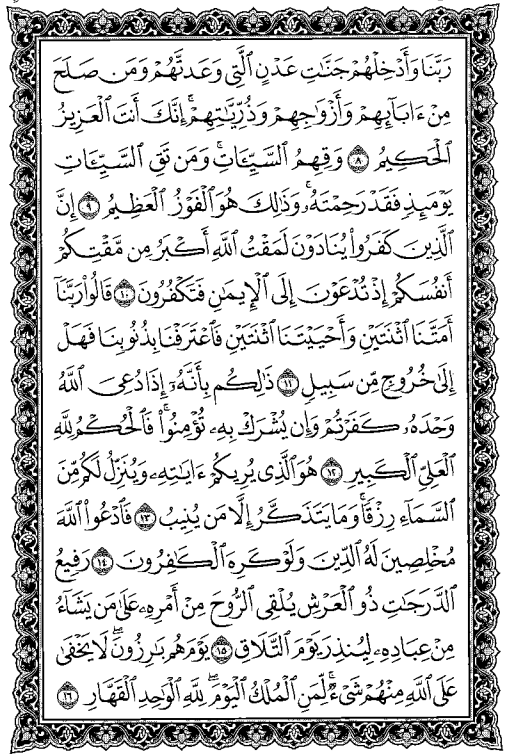 رَبَّنَا وَأَدْخِلْهُمْ جَنَّٰتِ عَدْنٍ ٱلَّتِى وَعَدتَّهُمْ وَمَن صَلَحَ
مِنْ ءَابَآئِهِمْ وَأَزْوَٰجِهِمْ وَذُرِّيَّٰتِهِمْ ۚ إِنَّكَ أَنتَ ٱلْعَزِيزُ
ٱلْحَكِيمُ ٨ وَقِهِمُ ٱلسَّيِّـَٔاتِ ۚ وَمَن تَقِ ٱلسَّيِّـَٔاتِ
يَوْمَئِذٍ فَقَدْ رَحِمْتَهُۥ ۚ وَذَٰلِكَ هُوَ ٱلْفَوْزُ ٱلْعَظِيمُ ٩ إِنَّ
ٱلَّذِينَ كَفَرُوا۟ يُنَادَوْنَ لَمَقْتُ ٱللَّهِ أَكْبَرُ مِن مَّقْتِكُمْ
أَنفُسَكُمْ إِذْ تُدْعَوْنَ إِلَى ٱلْإِيمَٰنِ فَتَكْفُرُونَ ١٠ قَالُوا۟ رَبَّنَآ
أَمَتَّنَا ٱثْنَتَيْنِ وَأَحْيَيْتَنَا ٱثْنَتَيْنِ فَٱعْتَرَفْنَا بِذُنُوبِنَا فَهَلْ
إِلَىٰ خُرُوجٍ مِّن سَبِيلٍ ١١ ذَٰلِكُم بِأَنَّهُۥٓ إِذَا دُعِىَ ٱللَّهُ
وَحْدَهُۥ كَفَرْتُمْ وَإِن يُشْرَكْ بِهِۦ تُؤْمِنُوا۟ ۚ فَٱلْحُكْمُ لِلَّهِ
ٱلْعَلِىِّ ٱلْكَبِيرِ ١٢ هُوَ ٱلَّذِى يُرِيكُمْ ءَايَٰتِهِۦ وَيُنَزِّلُ لَكُم مِّنَ
ٱلسَّمَآءِ رِزْقًا ۚ وَمَا يَتَذَكَّرُ إِلَّا مَن يُنِيبُ ١٣ فَٱدْعُوا۟ ٱللَّهَ
مُخْلِصِينَ لَهُ ٱلدِّينَ وَلَوْ كَرِهَ ٱلْكَٰفِرُونَ ١٤ رَفِيعُ
ٱلدَّرَجَٰتِ ذُو ٱلْعَرْشِ يُلْقِى ٱلرُّوحَ مِنْ أَمْرِهِۦ عَلَىٰ مَن يَشَآءُ
مِنْ عِبَادِهِۦ لِيُنذِرَ يَوْمَ ٱلتَّلَاقِ ١٥ يَوْمَ هُم بَٰرِزُونَ ۖ لَا يَخْفَىٰ
عَلَى ٱللَّهِ مِنْهُمْ شَىْءٌ ۚ لِّمَنِ ٱلْمُلْكُ ٱلْيَوْمَ ۖ لِلَّهِ ٱلْوَٰحِدِ ٱلْقَهَّارِ ١٦